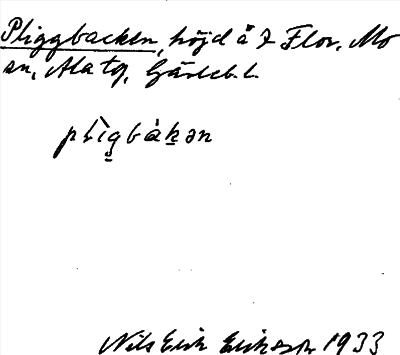 Pliggbacken, höjd å 7 Flor, Mo
sn, Ala tg, Gävleb. l.
plìgbàkən
Nils Erik Eriksson 1933